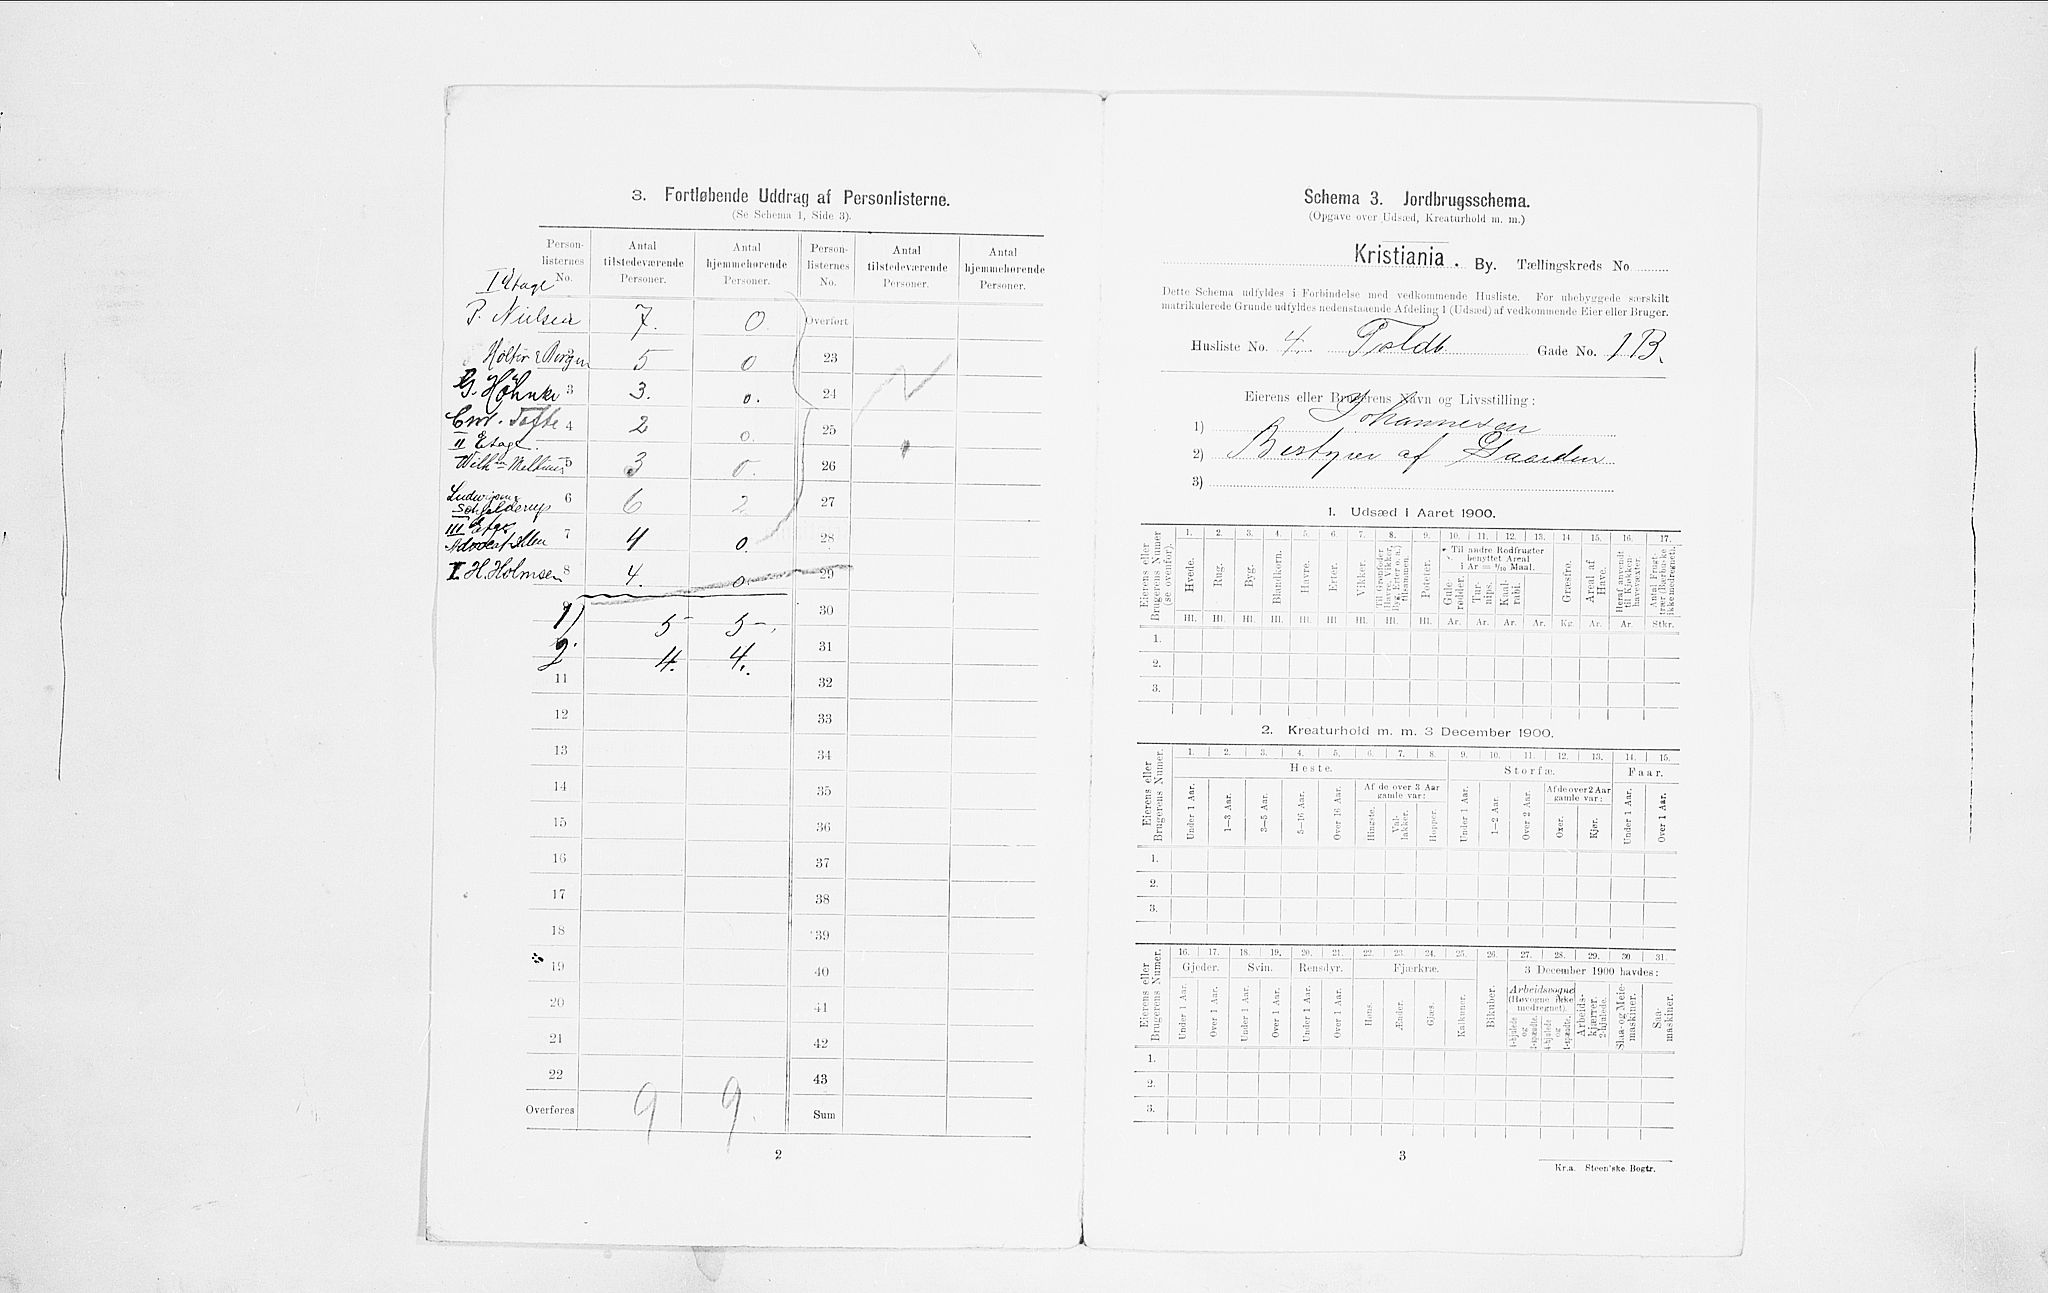 3. Fortløbende Uddrag af Personlisterne.
(Se Schema 1, Side 3).
Person-listernes No. Antal tilstedeværende Personer. Antal hjemmehørende Personer. Person-listernes No. Antal tilstedeværende Personer. Antal hjemmehørende Personer.
I Etage
P. Nielsen 7. 0. Overført
Holter & Borgen 5 0 23
G. Höhnke 3 3. 0. 24
Tofte 4 2 0. 25
II Etage
Wilhm 5 3 0. 26
Ludwigsen & Schjelderup 6 6 2 27
III Etage
Advocat 7 4 0. 28
H. Holmsen 8 4. 0. 29
1) 5 5 30
2. 4. 4. 31
11 32
12 33
13 34
14 35
15 36
16 37
17 38
18 39
19 40
20 41
21 42
22 43
Overføres 9 9. Sum
2
Schema 3. Jordbrugsschema.
(Opgave over Udsæd, Kreaturhold m. m.)
Kristiania. By. Tællingskreds No
Dette Schema udfyldes i Forbindelse med vedkommende Husliste. For ubebyggede særskilt
matrikulerede Grunde udfyldes nedenstaaende Afdeling 1 (Udsæd) af vedkommende Eier eller Bruger.
Husliste No. 4. Toldb Gade No. 1B.
Eierens eller Brugerens Navn og Livsstilling:
1) Johannesen
2) Bestyrer af Gaarden
3)
1. Udsæd i Aaret 1900.
Eierens eller Brugerens Numer (se ovenfor).
1. 2. 3. 4. 5. 6. 7. 8. 9. 10. 11. 12. 13. 14. 15. 16. 17.
Til andre Rodfrugter benyttet Areal i Ar = 1/10 Maal.
Hvede. Rug. Byg. Blandkorn. Havre. Erter. Vikker. Til Grønfoder Havre, Vikker, Byg, Erter o. a.) tilsammen. Poteter. Gule-rødder. Tur-nips. Kaal-rabi. Græsfrø. Areal af Have. Heraf anvendt til Kjøkken-havevæxter. Antal Frugt-trær (Bærbuske ikke medregnet).
Hl. Hl. Hl. Hl. Hl. Hl. Hl. Hl. Hl. Ar. Ar. Ar. Ar. Kg. Ar. Ar. Stkr.
1.
2.
3.
2. Kreaturhold m. m. 3 December 1900.
Eierens eller Brugerens Numer.
1. 2. 3. 4. 5. 6. 7. 8. 9. 10. 11. 12. 13. 14. 15.
Heste. Storfæ. Faar.
Af de over 3 Aar gamle var: Af de over 2 Aar gamle var:
Under 1 Aar. 1—3 Aar. 3—5 Aar. 5—16 Aar. Over 16 Aar. Hingste. Val-lakker. Hopper. Under 1 Aar. 1—2 Aar. Over 2 Aar. Oxer. Kjør. Under 1 Aar. Over 1 Aar.
1.
2.
3.
Eierens eller Brugerens Numer.
16. 17. 18. 19. 20. 21. 22. 23. 24. 25. 26. 27. 28. 29. 30 31.
Gjeder. Svin. Rensdyr. Fjærkræ. 3 December 1900 havdes:
Arbeidsvogne (Høvogne ikke medregnet).
Under 1 Aar. Over 1 Aar. Under 1 Aar. Over 1 Aar. Under 1 Aar. Over 1 Aar. Høns. Ænder. Gjæs. Kalkuner. Bikuber. 4-hjulede og 1-spændte. 4-hjulede og 1-spændte. Arbeids-kjærrer. 2-hjulede. Slaa- og Meie-maskiner. Saa-maskiner.
1.
2.
3.
3
Kr.a. Steen'ske Bogtr.